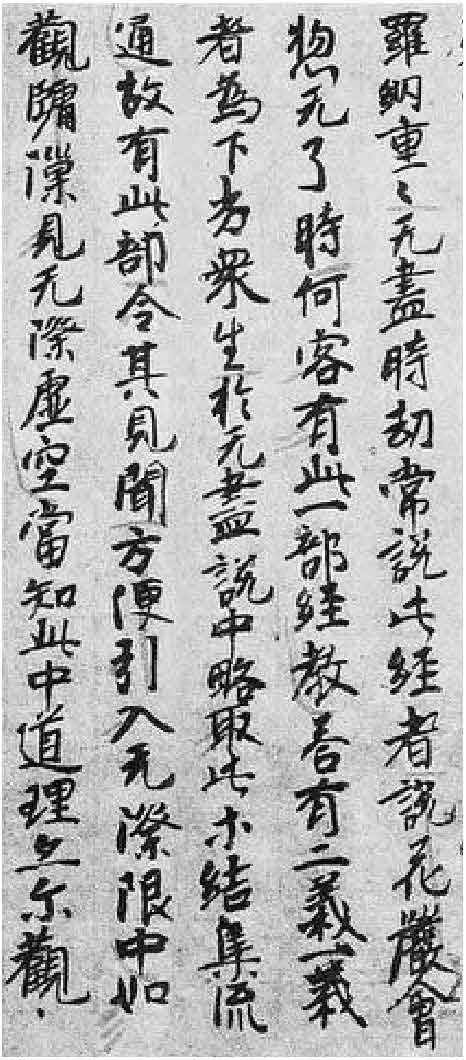 羅網重々无盡時劫常說此経者說花嚴會
惣无了時何容有此一部経教荅有二義一義
者為下劣衆生於无盡說中略取此等結集流
通故有此部令其見聞方便引入无際限中如
觀牖隟見无際虛空當知此中道理亦尔觀